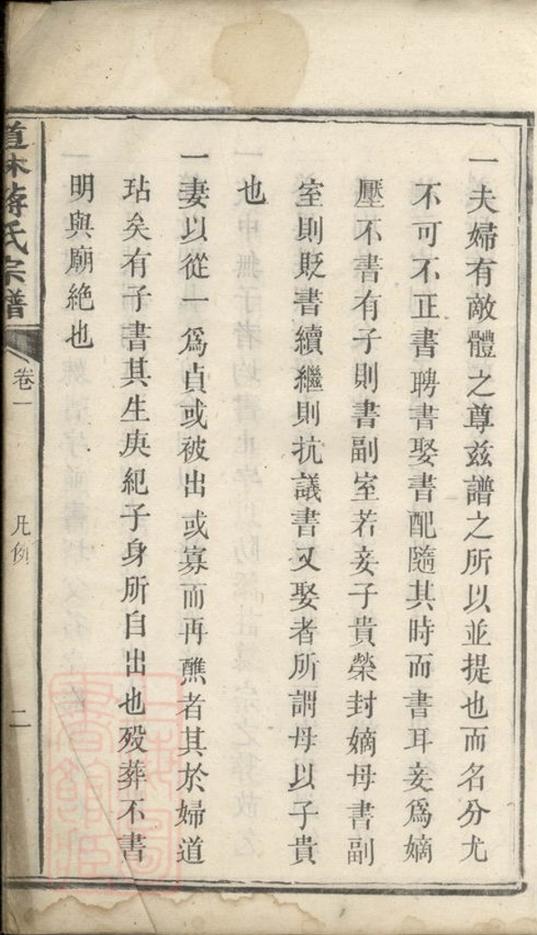 一夫婦有敵體之尊茲譜之所以並提也而名分尤
不可不正書聘書娶書配隨其時而書耳妾爲嫡
壓不書有子則書副室若妾子貴榮封嫡母書副
室則貶書續繼則抗議書又娶者所謂母以子貴
也
一妻以從一爲貞或被出或寡而再醮者其於婦道
玷矣有子書其生庚紀子身所自出也歿葬不書
明與廟絕也
道林蔣氏宗譜
卷一
凡例
二